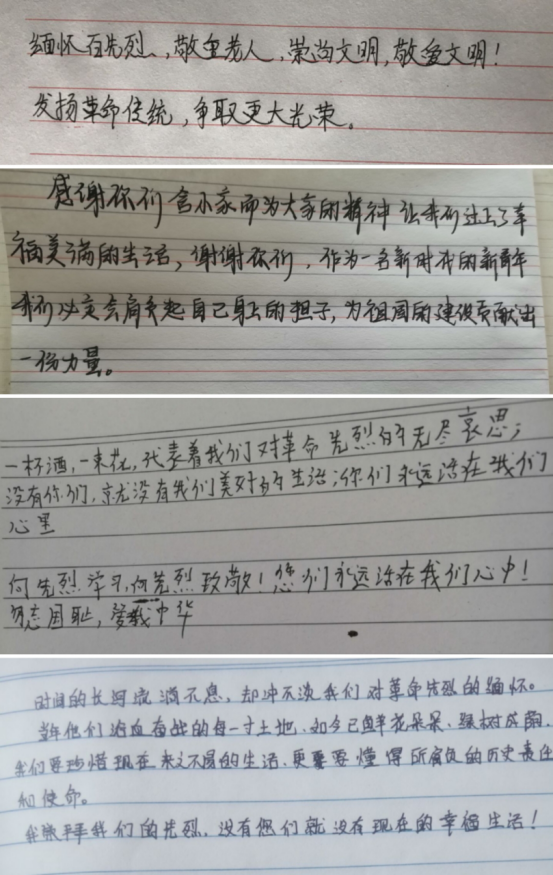 缅怀百先烈，敬重老人，崇尚文明，敬爱文明！
发扬革命传统，争取更大光荣。
感谢你们舍小家而为大家的精神让我们过上了幸
福美满的生活，谢谢你们，作为一名新时代的新青年
我们必定会肩负起自己身上的担子，为祖国的建设贡献出
一份力量。
一杯酒，一束花，代表着我们对革命先烈的无尽哀思；
没有你们，就没有我们美好的生活；你们永远活在我们
心里
向先烈学习，向先烈致敬！您们永远活在我们心中！
勿忘国耻，爱我中华
时间的长河流淌不息，却冲不淡我们对革命先烈的缅怀。
当年他们浴血奋战的每一寸土地，如今已鲜花朵朵，绿树成荫，
我们要珍惜现在来之不易的生活，更要要懂得所肩负的历史责任
和使命。
我崇拜我们的先烈，没有他们就没有现在的幸福生活！